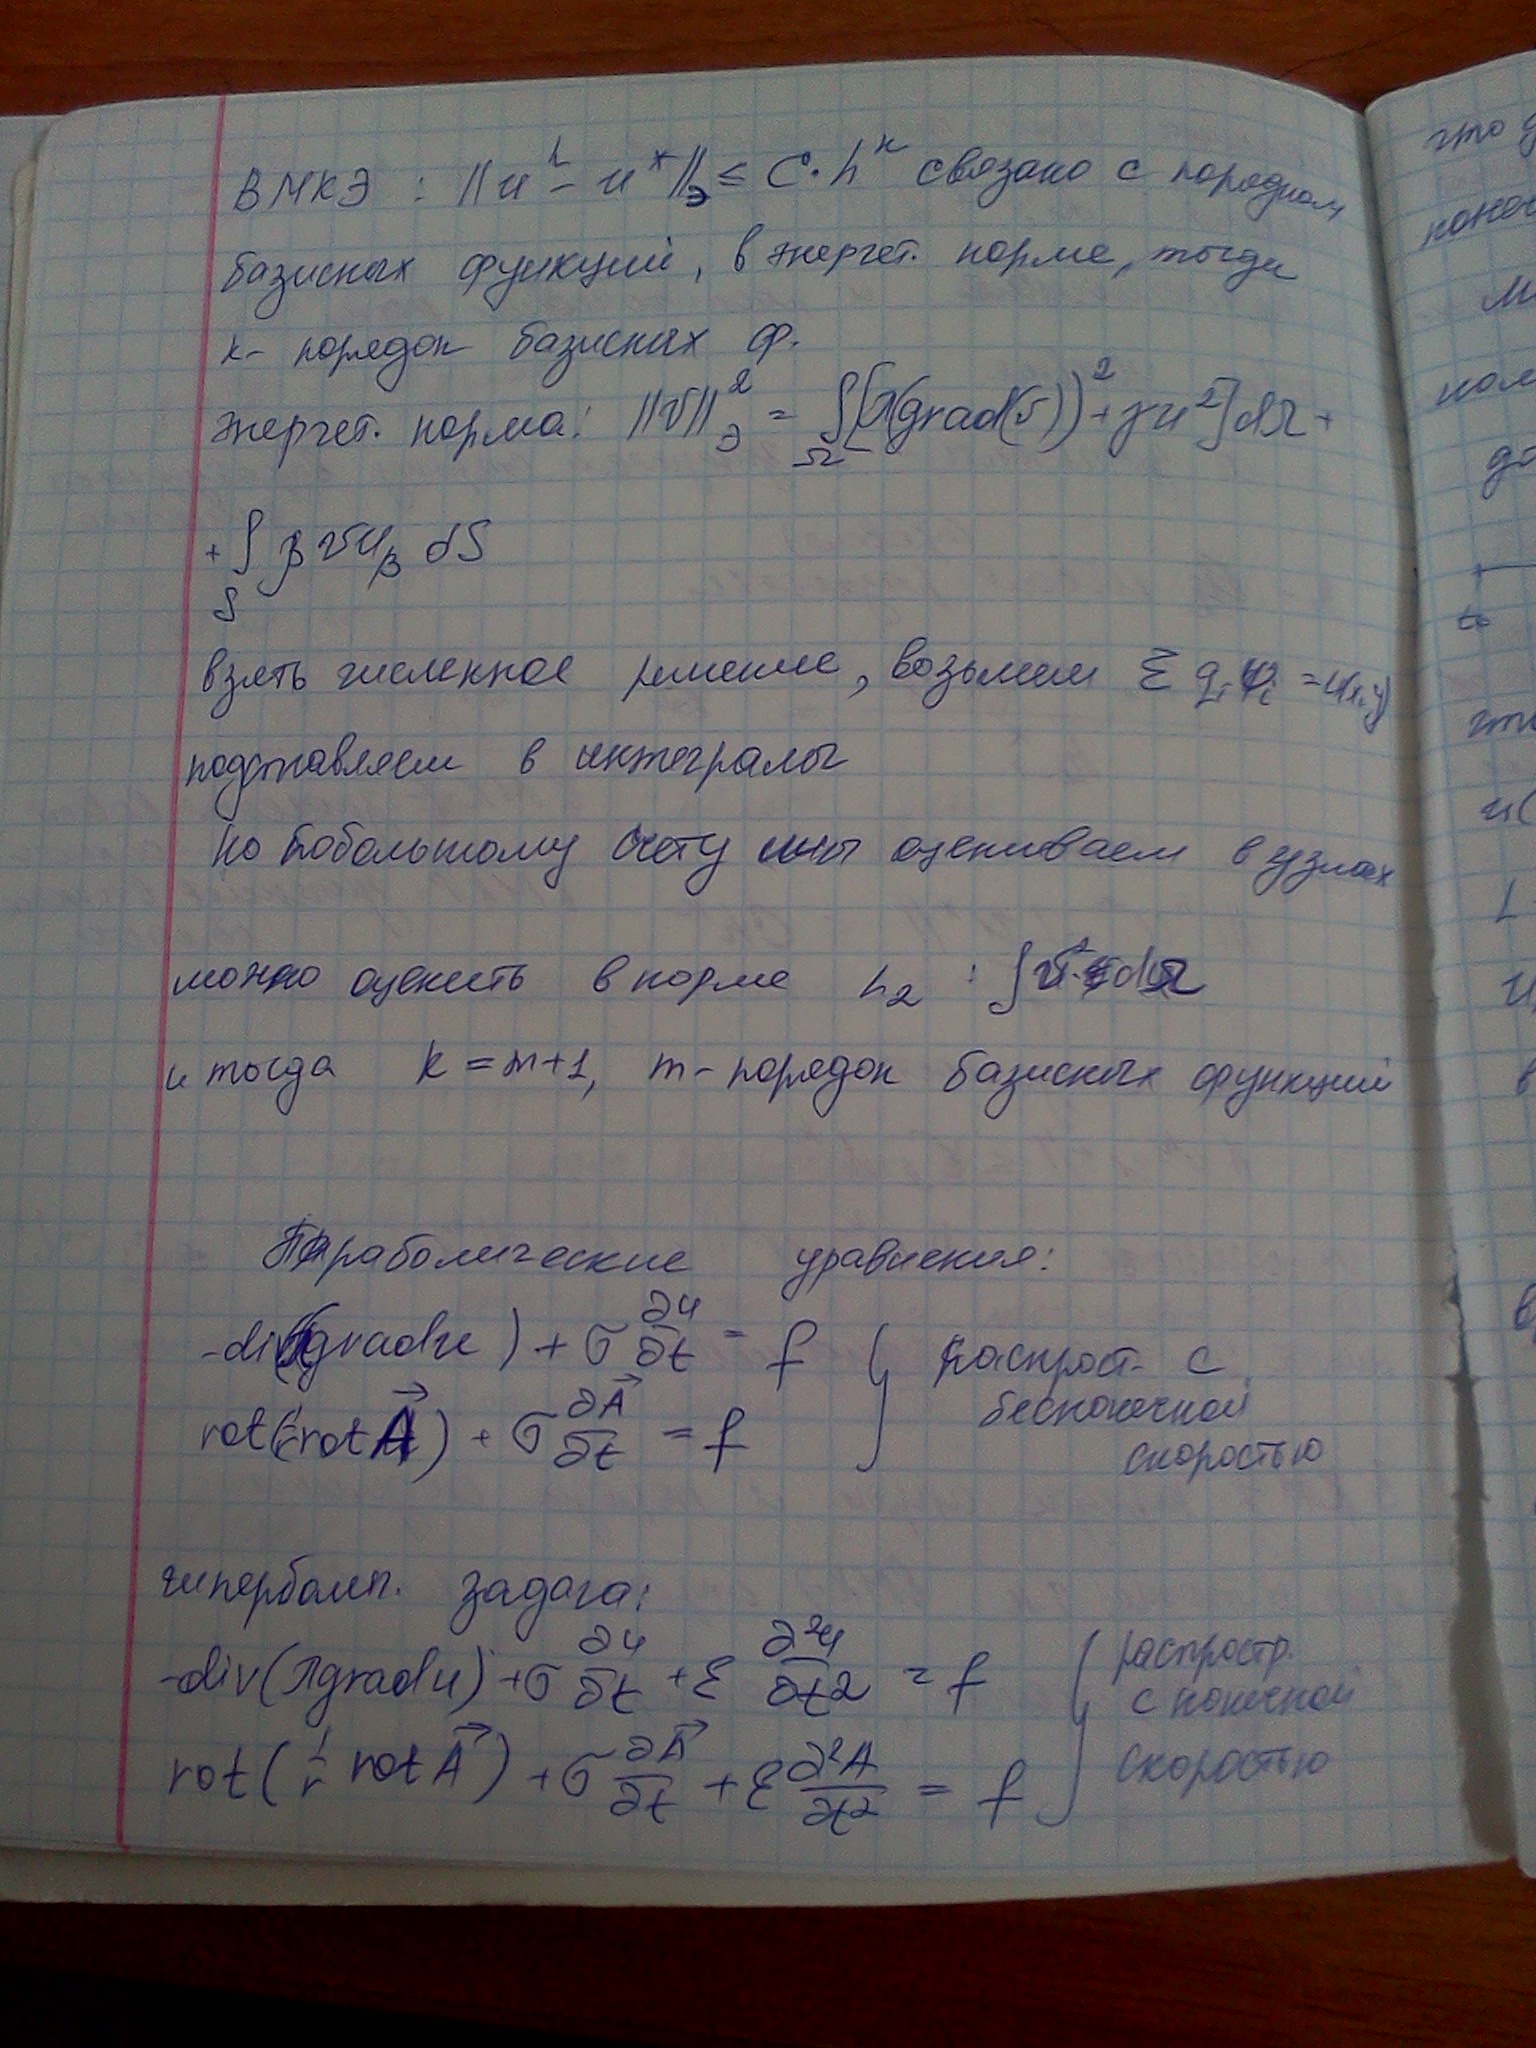 В МКЭ : ||u^h - u*||_Э ≤ C·h^k связано с порядком
базисных функций, в энергет. норме, тогда
k - порядок базисных ф.
энергет. норма: ||v||²_Э = ∫_Ω [λ(grad(v))² + γu²] dΩ +
+ ∫_S β v u_β dS
взять численное решение, возьмем Σ q_i φ_i = u(x,y)
подставляем в интегралы
но побольшому счету мы оцениваем в узлах
можно оценить в норме L₂ : ∫ v² dΩ
и тогда k = m+1, m - порядок базисных функций
Параболические уравнения:
-div(λgradu) + σ ∂u/∂t = f } распрост. с
бесконечной
rot(1/r rot A⃗) + σ ∂A⃗/∂t = f
скоростью
гиперболич. задача:
-div(λgradu) + σ ∂u/∂t + ε ∂²u/∂t2 = f } распростр.
с конечной
rot(1/r rot A⃗) + σ ∂A⃗/∂t + ε ∂²A/∂t2 = f
скоростью